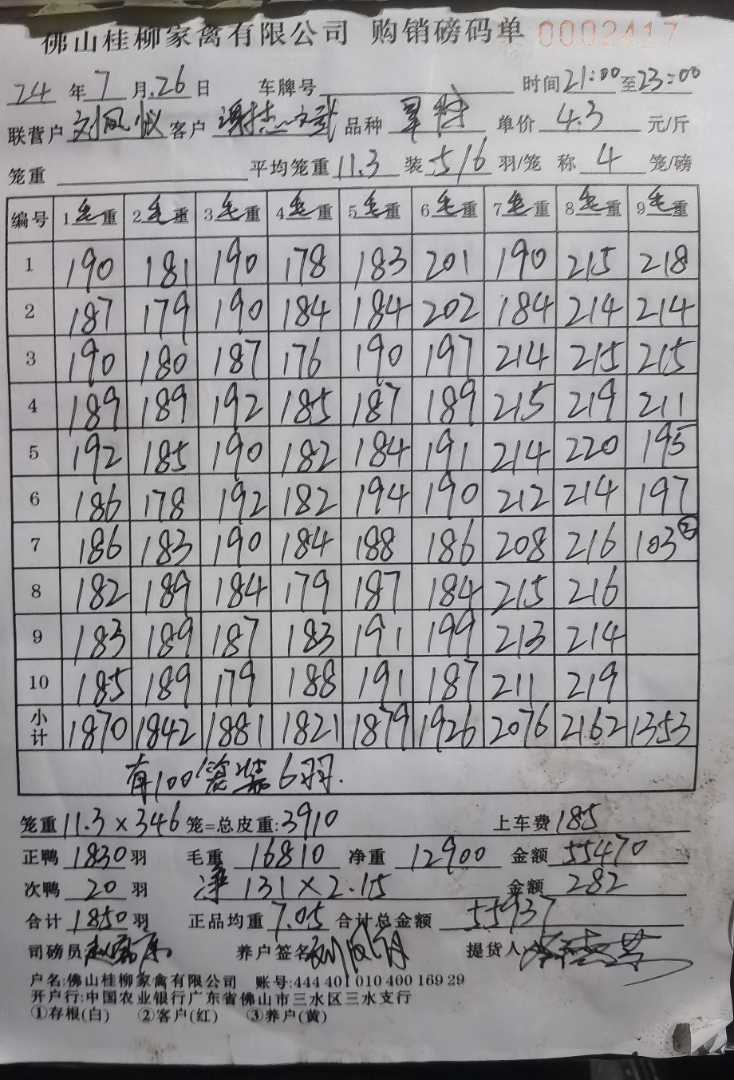 佛山桂柳家禽有限公司 购销磅码单 0002417
24 年 7 月 26 日 车牌号 时间 21:00 至 23:00
联营户 刘凤仪 客户 品种 单价 4.3 元/斤
笼重 平均笼重 11.3 装 5/6 羽/笼 称 4 笼/磅
编号 1毛重 2毛重 3毛重 4毛重 5毛重 6毛重 7毛重 8毛重 9毛重
1 190 181 190 178 183 201 190 215 218
2 187 179 190 184 184 202 184 214 214
3 190 180 187 176 190 197 214 215 215
4 189 189 192 185 187 189 215 219 211
5 192 185 190 182 184 191 214 220 195
6 186 178 192 182 194 190 212 214 197
7 186 183 190 184 188 186 208 216 103②
8 182 189 184 179 187 184 215 216
9 183 189 187 183 191 199 213 214
10 185 189 179 188 191 187 211 219
小计 1870 1842 1881 1821 1879 1926 2076 2162 1353
有100笼装6羽.
笼重 11.3×346 笼=总皮重:3910 上车费 185
正鸭 1830 羽 毛重 16810 净重 12900 金额 55470
次鸭 20 羽 净 131×2.15 金额 282
合计 1850 羽 正品均重 7.05 合计总金额 55937
司磅员 养户签名 提货人
户名:佛山桂柳家禽有限公司 账号:444 401 010 400 169 29
开户行:中国农业银行广东省佛山市三水区三水支行
①存根(白) ②客户(红) ③养户(黄)